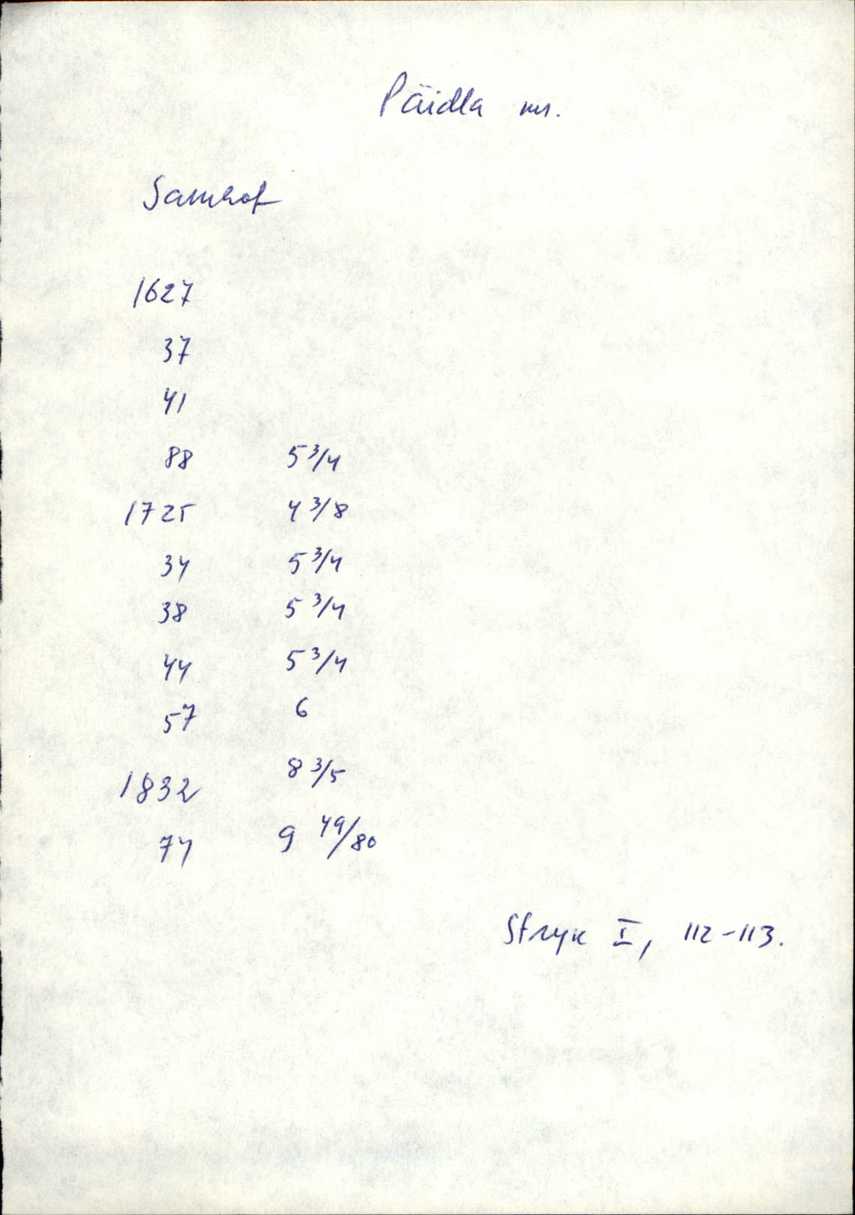 Päidla mr.
Samhof
1627
37
41
88 5 3/4
1725 4 3/8
34 5 3/4
38 5 3/4
44 5 3/4
57 6
1832 8 3/5
74 9 49/80
Stryk I, 112-113.